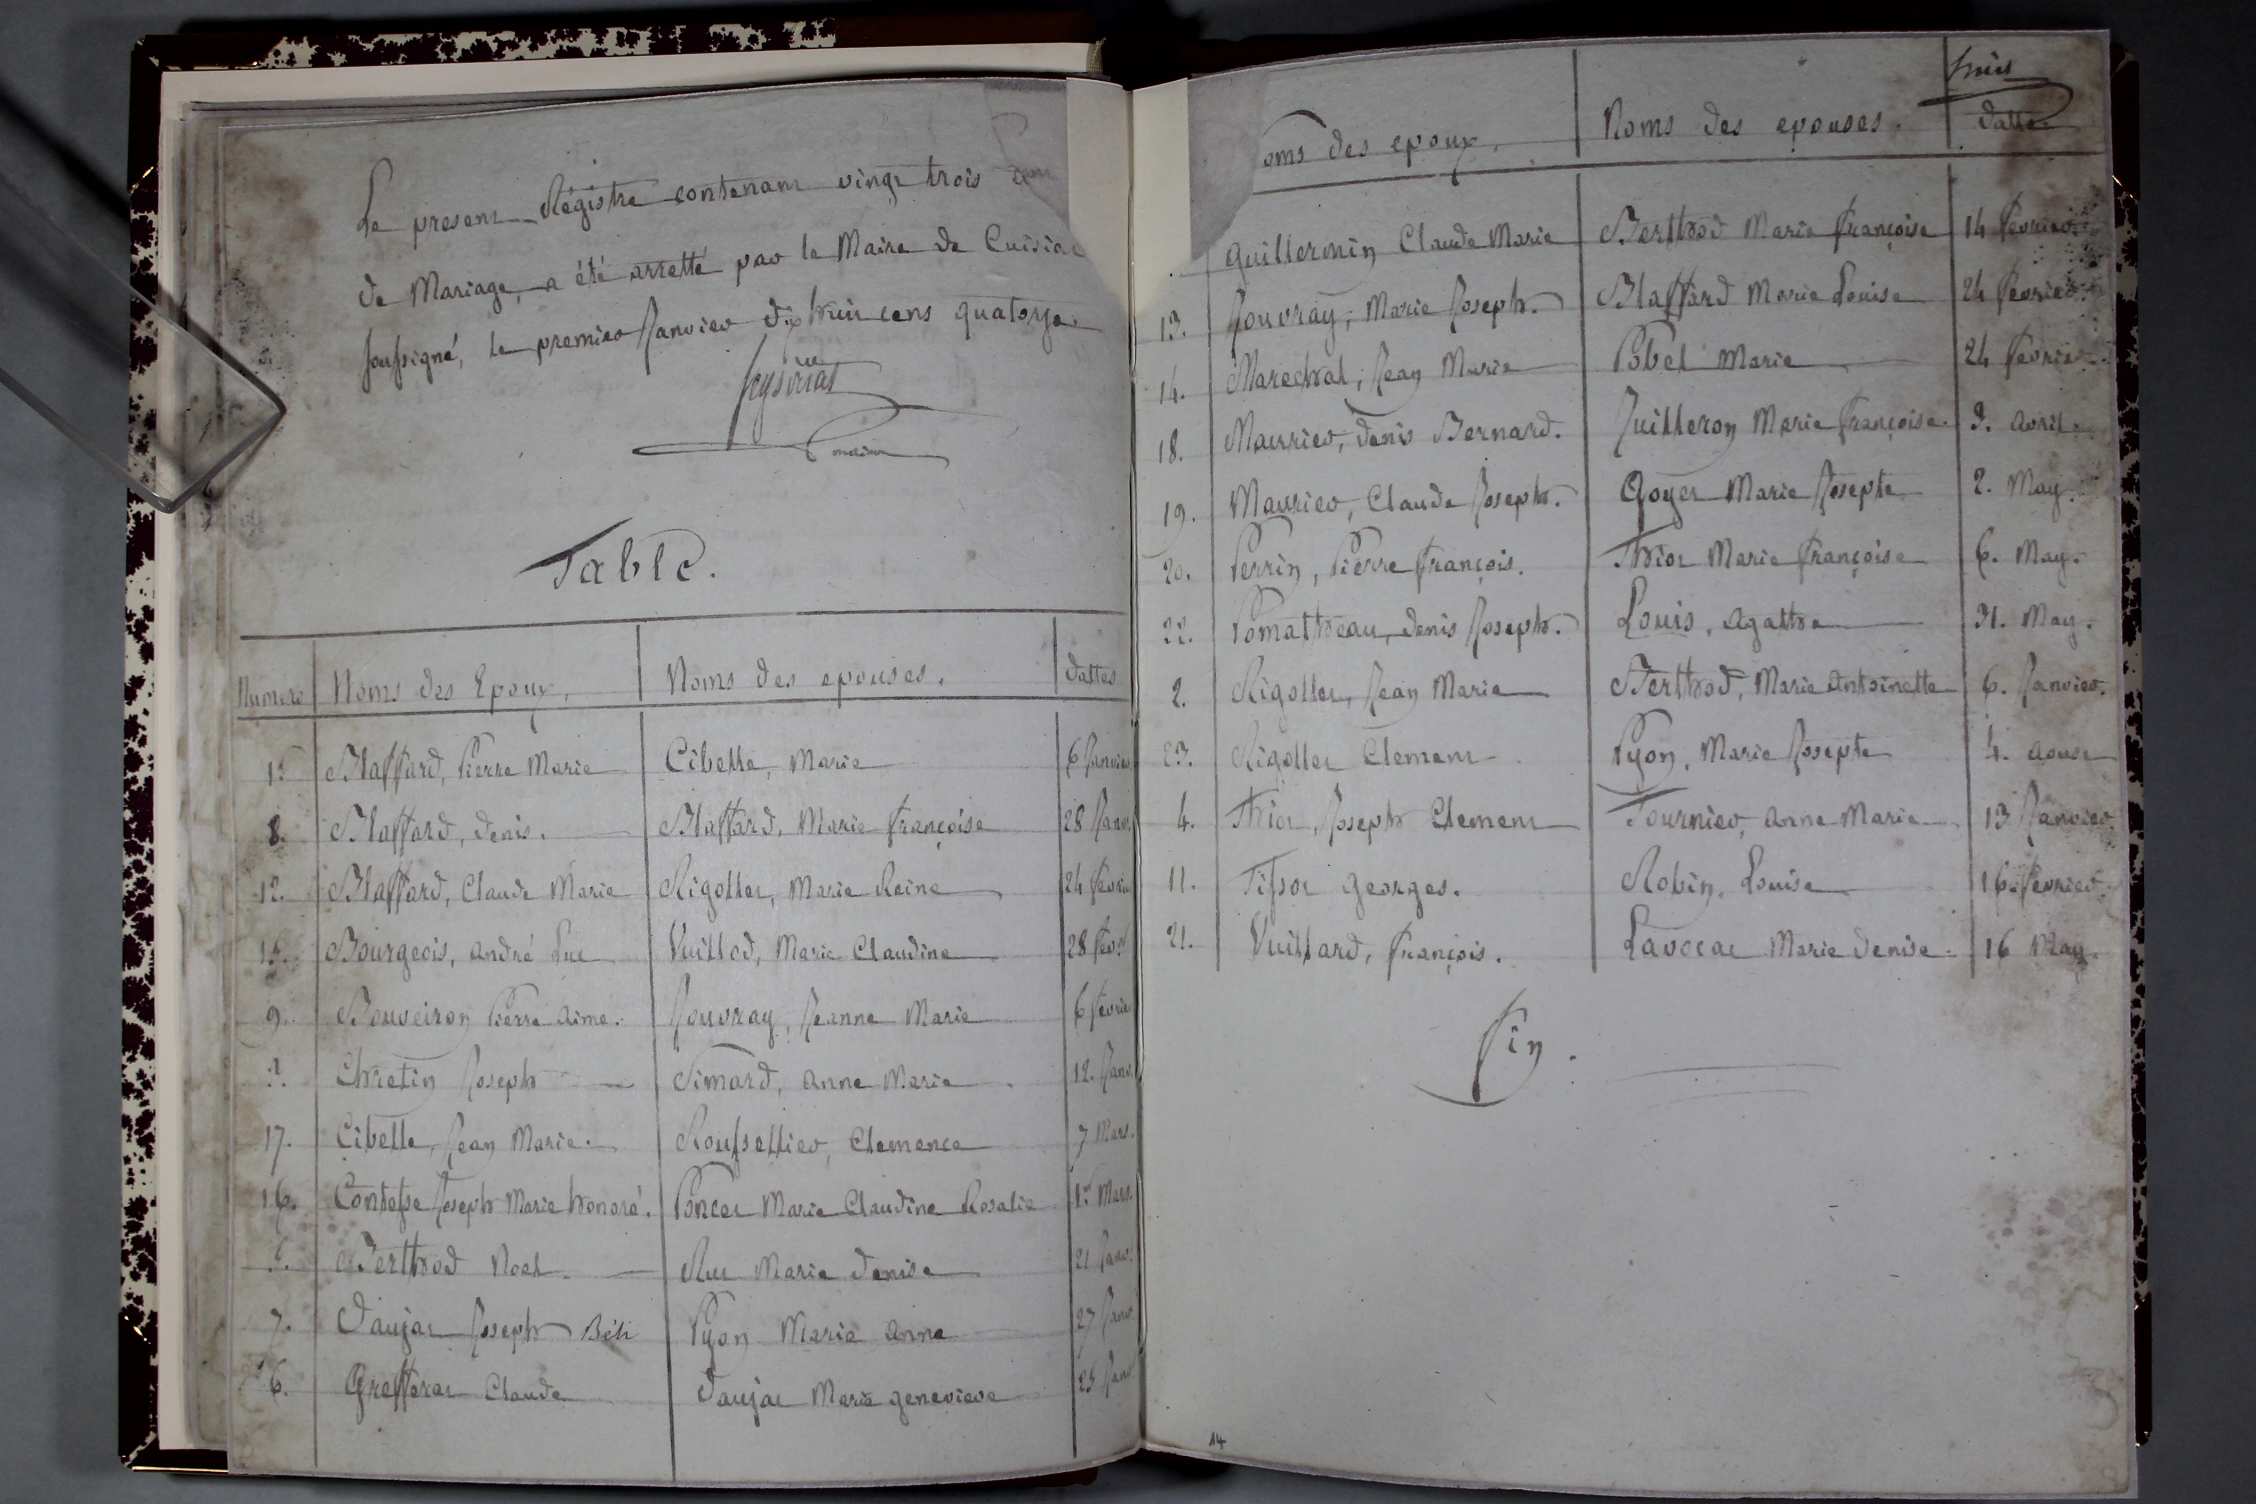 Le present Régistre contenant vingt trois
de Mariage, a été arretté par le Maire de
soussigné, le premier Janvier dix huit cens quatorze.
Table.
Numero Noms des Epoux, Noms des epouses. dattes
Blaffard, Pierre Marie Cibelle, Marie 6 Janvier
8. Blaffard, denis. Blaffard, Marie françoise 28 Janv.
12. Blaffard, Claude Marie Rigollet, Marie Reine 24 fevrier
15. Bourgeois, andré Luc Vuillod, Marie Claudine 28 fevr.
9. Bouveiron Pierre aimé. Jouvray, Jeanne Marie 6 fevrier
Chretin Joseph Simard, anne Marie 12. Janv.
17. Cibelle, Jean Marie. Roussellier, Clemence 7 Mars.
16. Contesse Joseph Marie honoré. Poncet Marie Claudine Rosalie 1er Mars.
Berthod Noel Rue Marie denise 21 Janv.
7. Daujat Joseph Pyon Marie anne 27 Janv.
6. Grefferat Claude Daujat Marie genevieve 25 Janv.
huit
oms des epoux, Noms des epouses. dattes
Guillermin Claude Marie Berthod Marie françoise 14 fevrier
13. Jouvray, Marie Joseph. Blaffard Marie Louise 24 fevrier
14. Marechal, Jean Marie Pobel Marie 24 fevrier
18. Maurier, denis Bernard. Juilleron Marie françoise. 3. avril
19. Maurier, Claude Joseph. Goyet Marie Josepte 2. May.
20. Perrin, Pierre françois. Thiot Marie françoise 6. May.
22. Pomatheau, denis Joseph. Louis, agathe 31. May.
2. Rigollet, Jean Marie Berthod, Marie Antoinette 6. Janvier.
23. Rigollet Clement Pyon, Marie Josepte 4. aoust
4. Thiot, Joseph Clement Tournier, anne Marie 13 Janvier.
11. Tissot georges. Robin, Louise 16 fevrier.
21. Vuillard, françois. Lavocat Marie denise. 16 May.
fin.
14